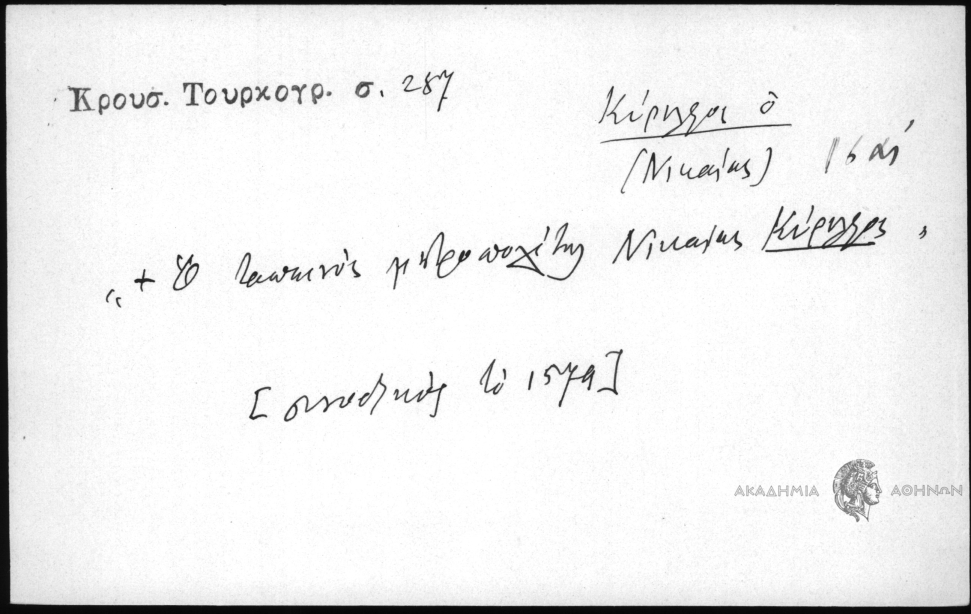 Κρουσ. Τουρκογρ. σ. 287
Κύριλλος ὁ
(Νικαίας) 16 αἰ
"+ Ὁ ταπεινός μητροπολίτης Νικαίας Κύριλλος "
[συνοδικός τὸ 1579]
ΑΚΑΔΗΜΙΑ ΑΘΗΝΩΝ